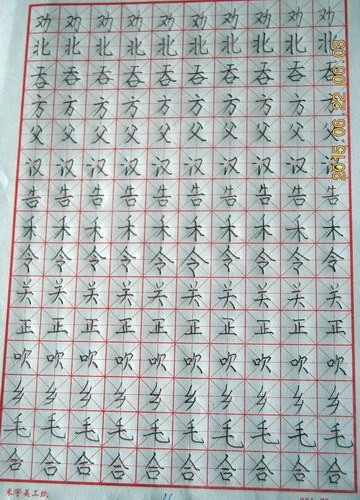 劝劝劝劝劝劝劝劝劝劝
北北北北北北北北北北
吞吞吞吞吞吞吞吞吞吞
方方方方方方方方方方
父父父父父父父父父父
汉汉汉汉汉汉汉汉汉汉
告告告告告告告告告告
禾禾禾禾禾禾禾禾禾禾
令令令令令令令令令令
关关关关关关关关关关
正正正正正正正正正正
吹吹吹吹吹吹吹吹吹吹
乡乡乡乡乡乡乡乡乡乡
毛毛毛毛毛毛毛毛毛毛
合合合合合合合合合合
米字美工纸
2015.06.22